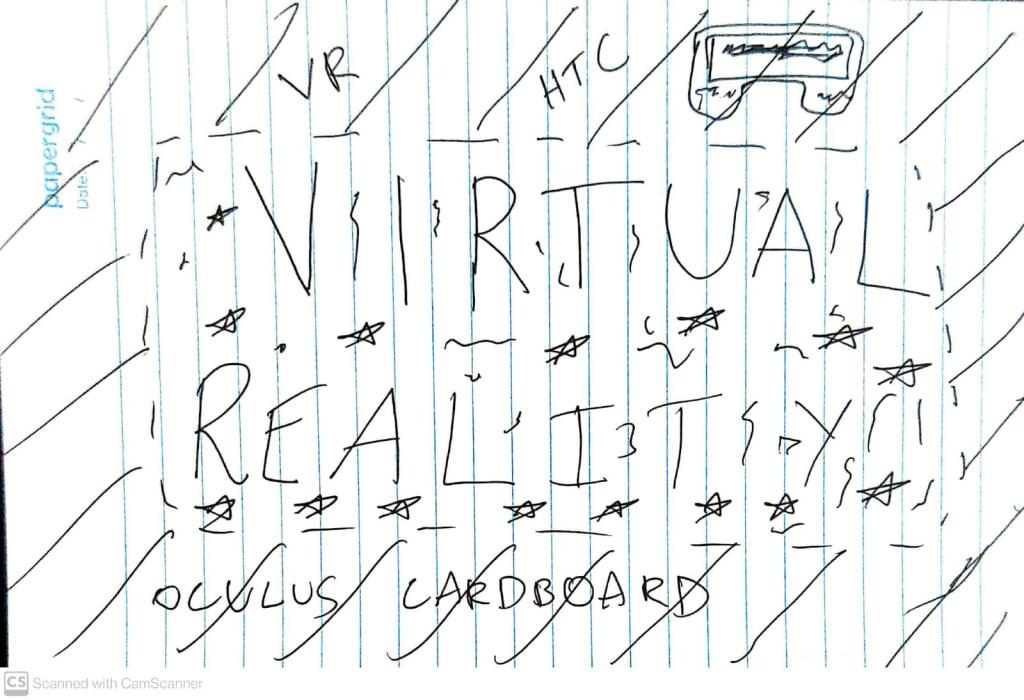 papergrid
Date: / /
VR HTC
VIRTUAL
REALITY
OCULUS CARDBOARD
CS Scanned with CamScanner